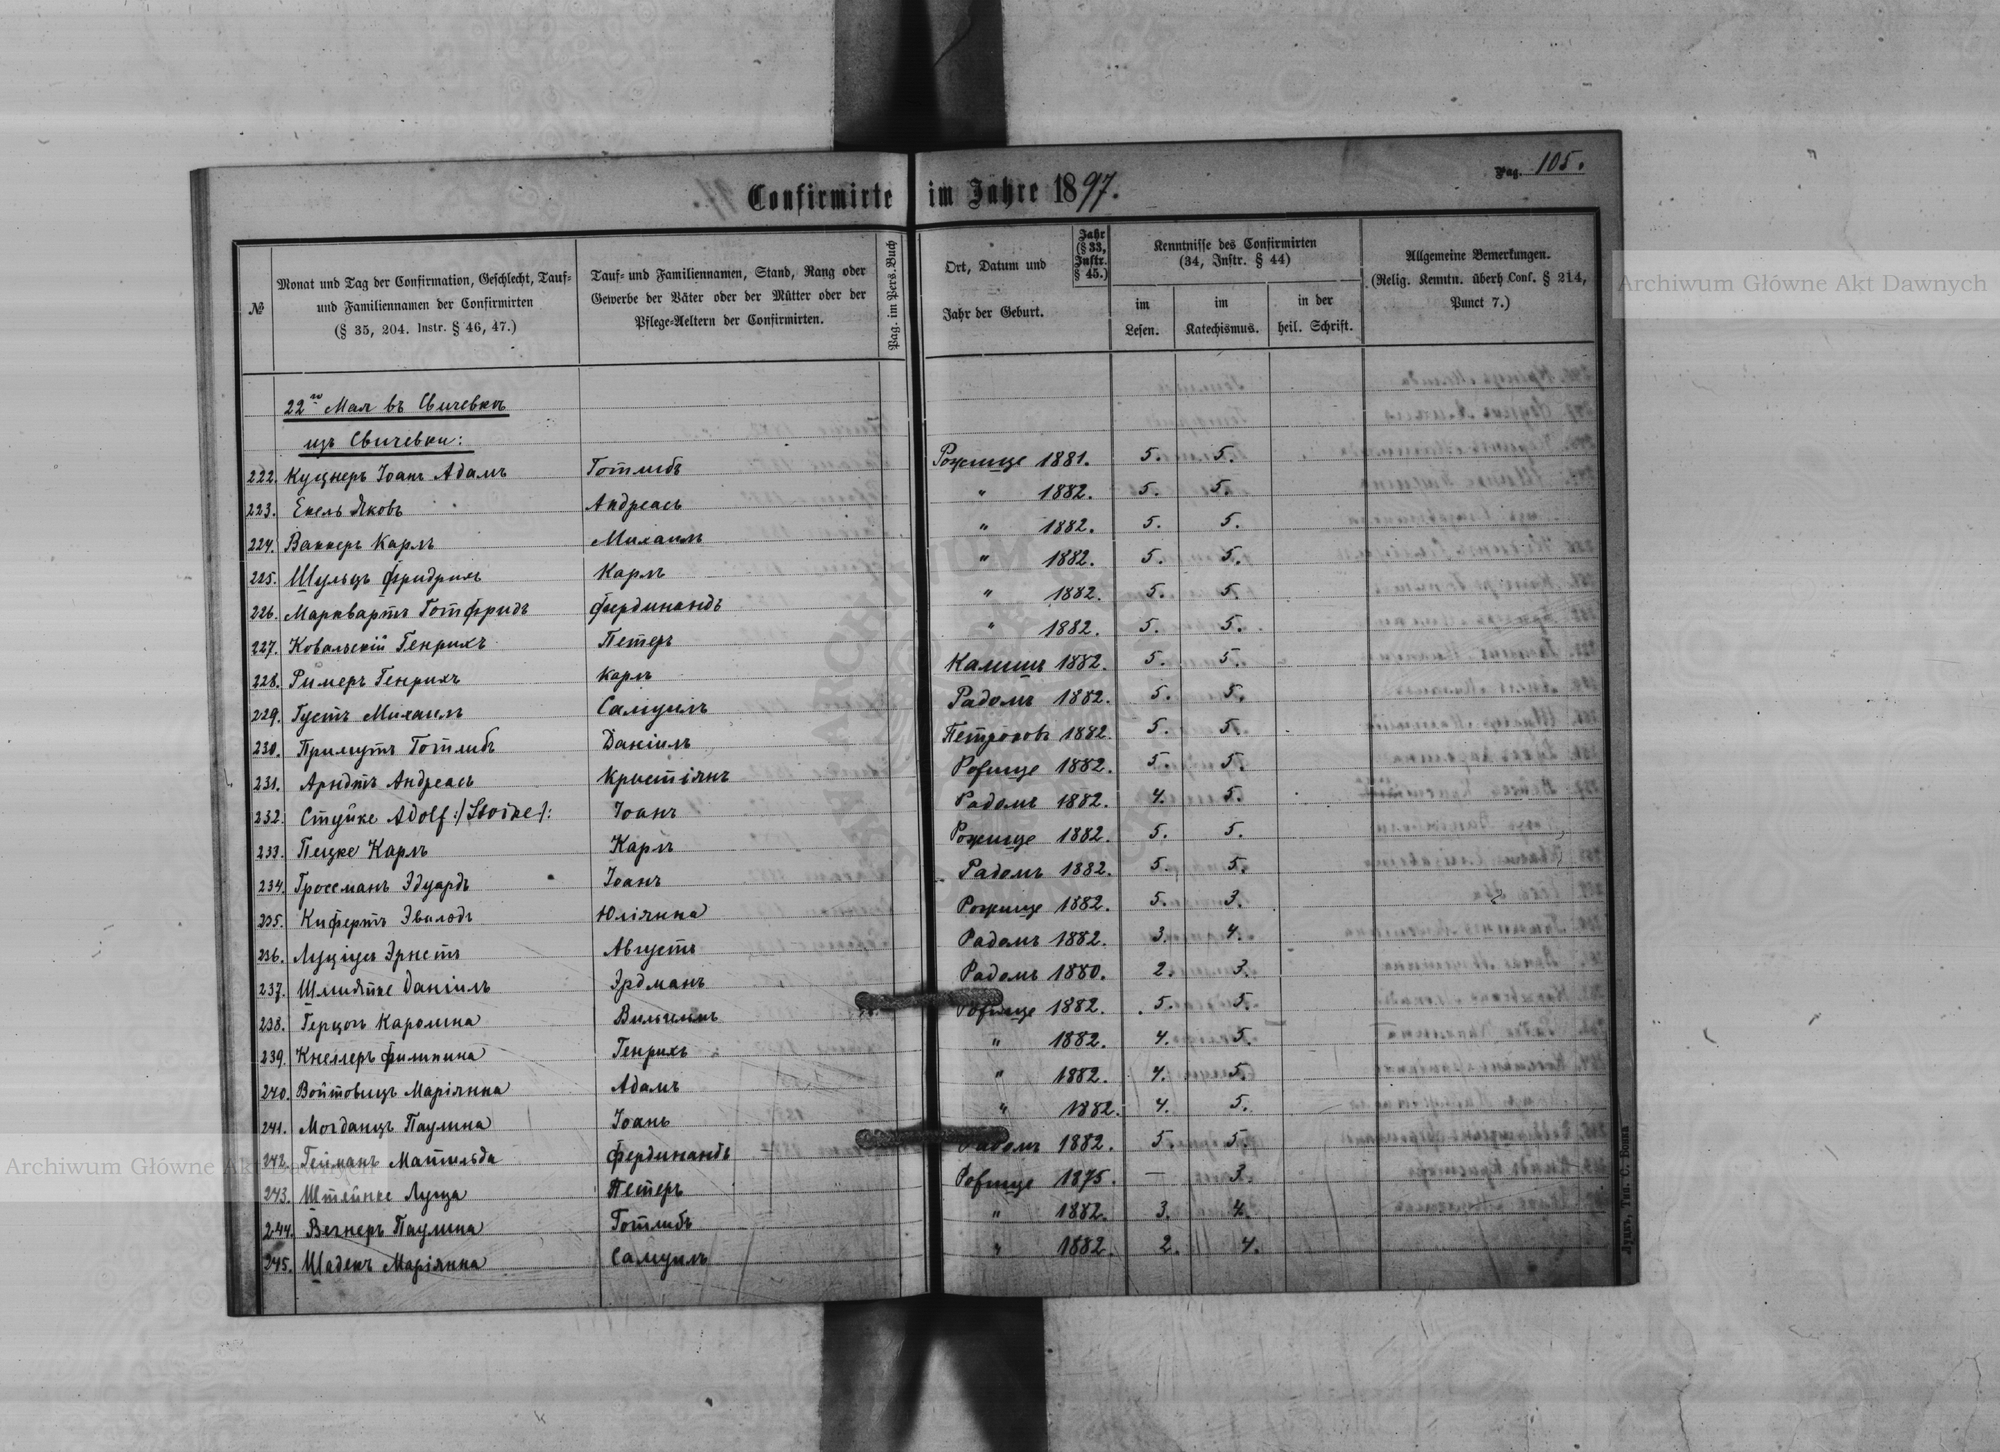 Pag. 105.
Confirmirte im Jahre 1897.
№
Monat und Tag der Confirmation, Geschlecht, Tauf- und Familiennamen der Confirmirten (§ 35, 204. Instr. § 46, 47.)
Tauf- und Familiennamen, Stand, Rang oder Gewerbe der Väter oder der Mütter oder der Pflege-Aeltern der Confirmirten.
Pag. im Pers. Buch
Ort, Datum und Jahr der Geburt.
Jahr (§ 33, Instr. § 45.)
Kenntnisse des Confirmirten (34, Instr. § 44)
im Lesen.
im Katechismus.
in der heil. Schrift.
Allgemeine Bemerkungen. (Relig. Kenntn. überh Conf. § 214, Punct 7.)
22го Мая въ Свичевкѣ
изъ Свичевки:
222. Куцнеръ Іоанъ Адамъ Готлибъ Рожище 1881. 5. 5.
223. Екель Яковъ Андреасъ " 1882. 5. 5.
224. Ваккеръ Карлъ Михаилъ " 1882. 5. 5.
225. Шульцъ Фридрихъ Карлъ " 1882. 5. 5.
226. Марквартъ Готфридъ Фердинандъ " 1882. 5. 5.
227. Ковальскій Генрихъ Петеръ " 1882. 5. 5.
228. Римеръ Генрихъ Карлъ Калишъ 1882. 5. 5.
229. Густъ Михаилъ Самуилъ Радомъ 1882. 5. 5.
230. Примутъ Готлибъ Даніилъ Петроковъ 1882. 5. 5.
231. Арндтъ Андреасъ Кристіянъ Рожище 1882. 5. 5.
232. Стуйке Adolf Іоанъ Радомъ 1882. 4. 5.
233. Пецке Карлъ Карлъ Рожище 1882. 5. 5.
234. Гроссманъ Эдуардъ Іоанъ Радомъ 1882. 5. 5.
235. Кифертъ Эвалдъ Юліянна Рожище 1882. 5. 3.
236. Луціусъ Эрнстъ Августъ Радомъ 1882. 3. 4.
237. Даніилъ Эрдманъ Радомъ 1880. 2. 3.
238. Герцогъ Каролина Вильгельмъ Рожище 1882. 5. 5.
239. Кнеллеръ Филипина Генрихъ " 1882. 4. 5.
240. Войтовицъ Маріянна Адамъ " 1882. 4. 5.
241. Могданцъ Паулина Іоанъ " 1882. 4. 5.
242. Гейманъ Матильда Фердинандъ Радомъ 1882. 5. 5.
243. Штейнке Луиза Петеръ Рожище 1875. — 3.
244. Вегнеръ Паулина Готлибъ " 1882. 3. 4.
245. Шадекъ Маріянна Самуилъ " 1882. 2. 4.
Луцкъ, Тип. С. Бонка
Archiwum Główne Akt Dawnych
Archiwum Główne Akt Dawnych